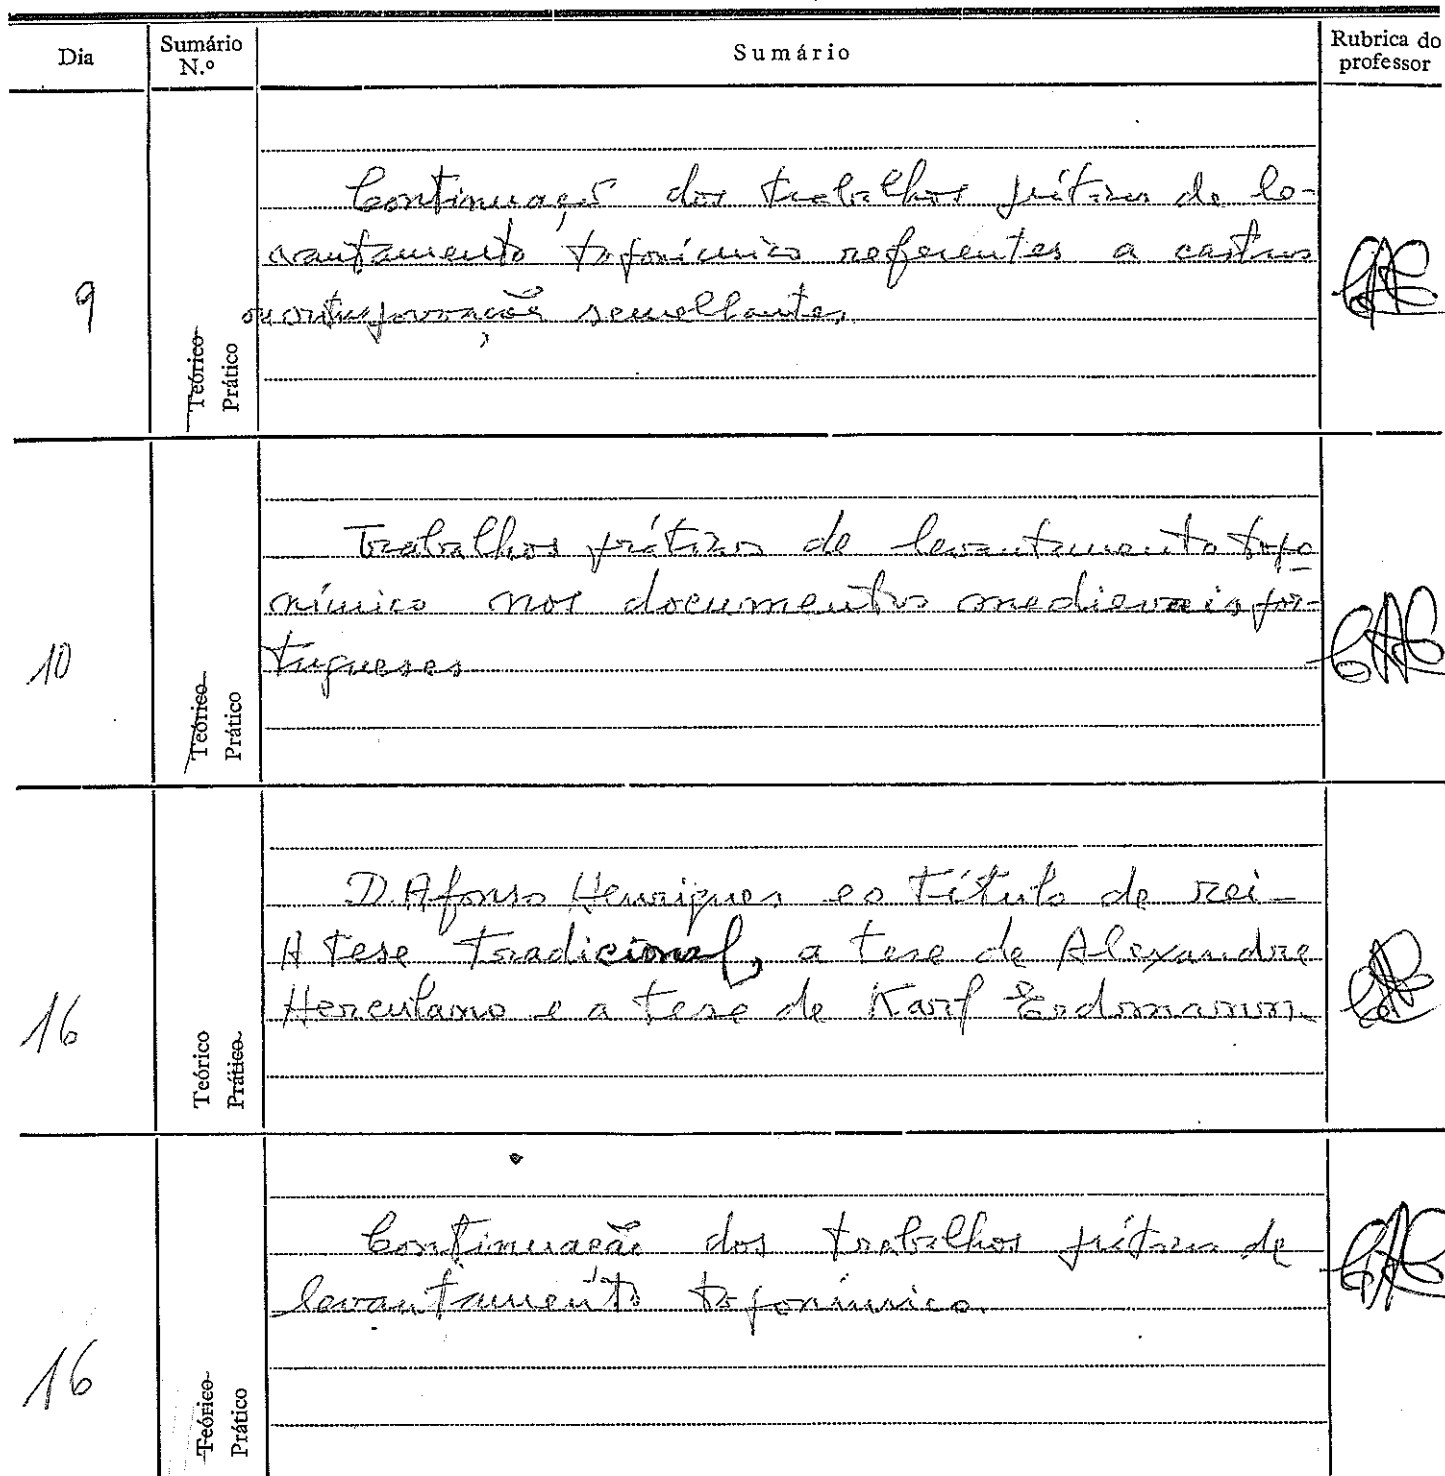 Dia
Sumário N.º
Sumário
Rubrica do professor
9
Teórico
Prático
Continuação dos trabalhos práticos de le-
vantamento toponímico referentes a castros
ou outras povoações semelhantes.
10
Teórico
Prático
Trabalhos práticos de levantamento topo
nímico nos documentos medievais por-
tugueses
16
Teórico
Prático
D. Afonso Henriques e o título de rei -
A tese tradicional, a tese de Alexandre
Herculano e a tese de Karl Erdmann.
16
Teórico
Prático
Continuação dos trabalhos práticos de
levantamento toponímico.